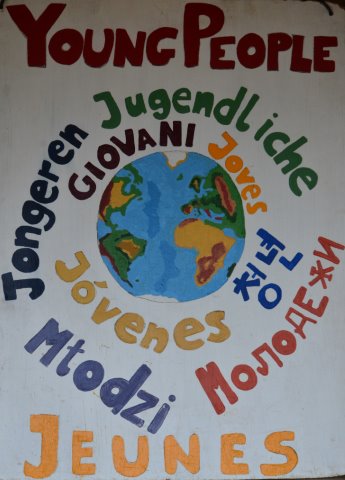 YOUNG PEOPLE
Jugendliche
Jongeren
GIOVANI
Joves
청년
Jóvenes
Молодежи
Młodzi
JEUNES